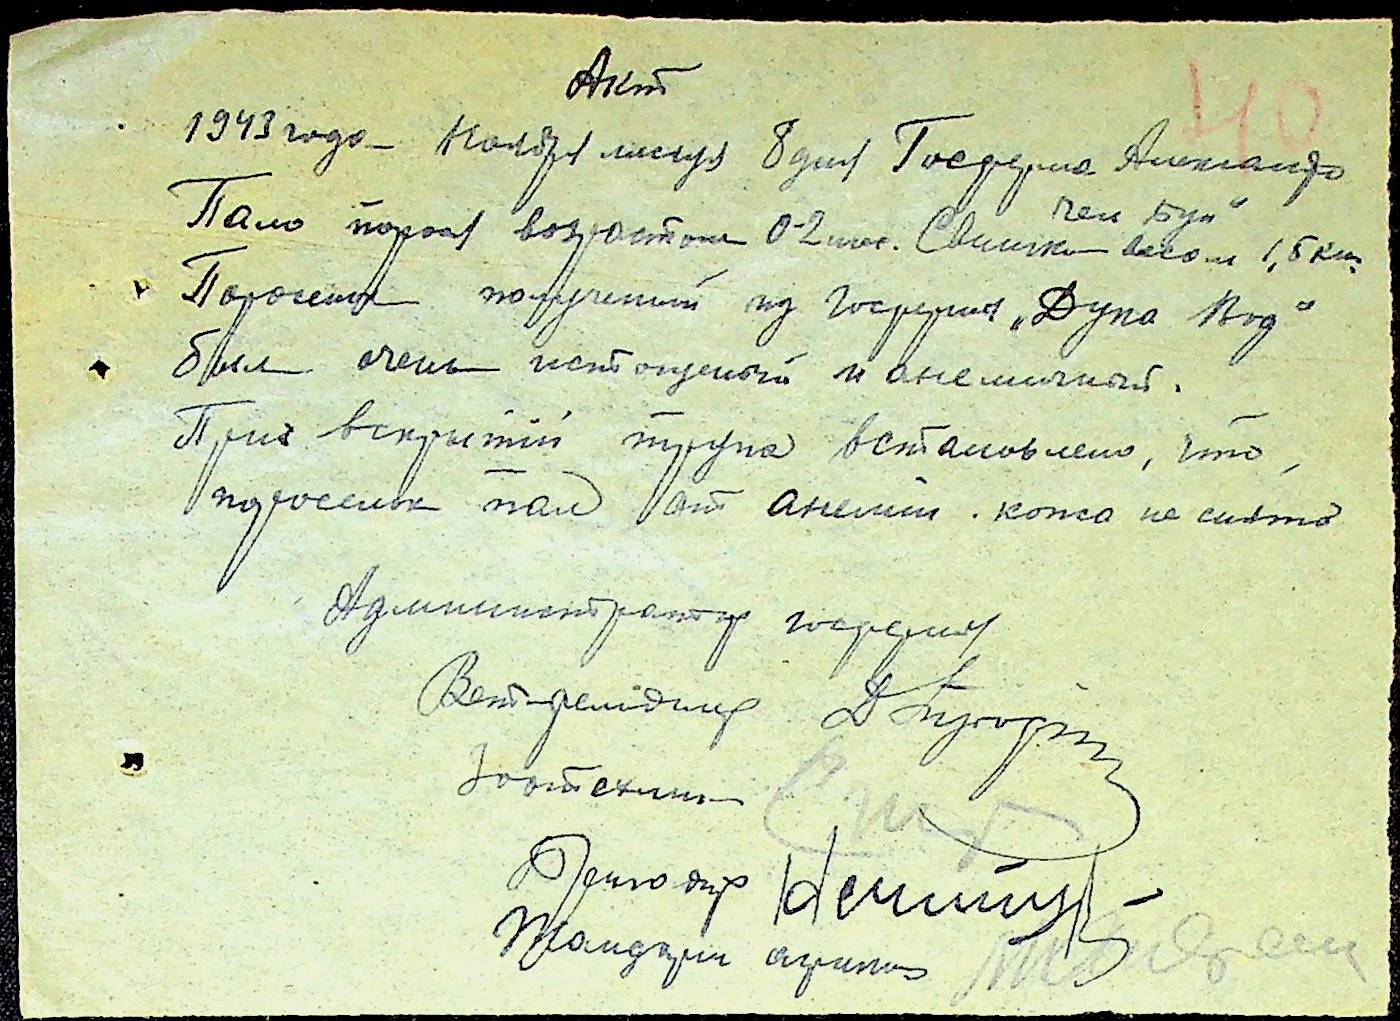 Акт
40
1943 года Ноября месяца 8 дня Госферма Александро
чел Буй"
Пало порося возрастом 0-2 мес. Свинка весом 1,5 кг.
Поросенок полученый из госфермы „Дупа Вод"
был очень истощеный и анемичный.
При вскрытии трупа встановлено, что,
поросенок пал от анемии. кожа не снята
Администратор госфермы
Ветфельдшер
Зоотехник
Бригадир
Жандарм аграрни